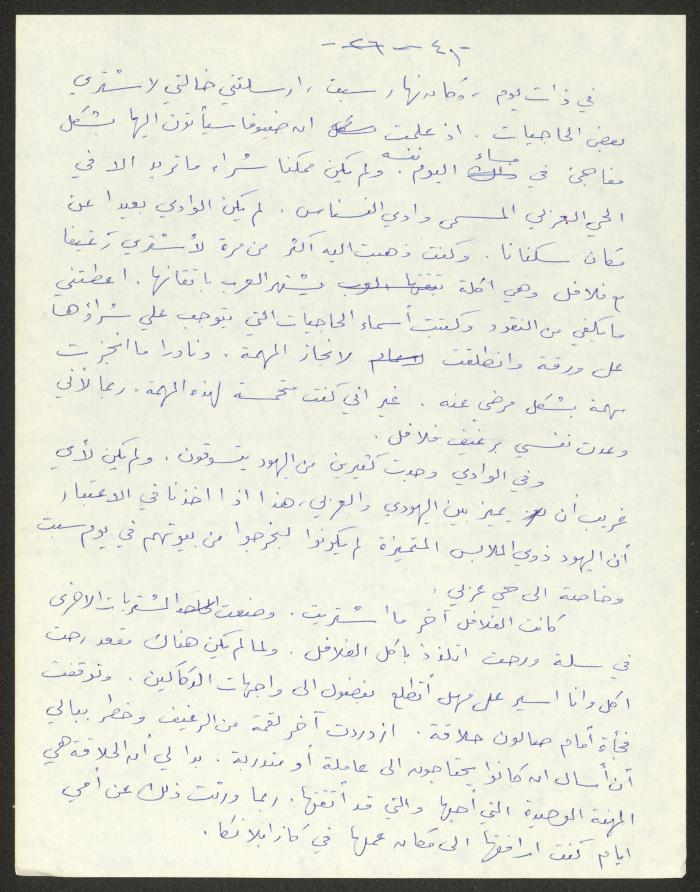 في ذات يوم، وكان نهار سبت، ارسلتني خالتي لاشتري
بعض الحاجيات. اذ علمت ان ضيوفا سيأتون اليها بشكل
مفاجئ في مساء اليوم نفسه. ولم يكن ممكنا شراء ما تريد الا في
الحي العربي المسمى وادي النسناس. لم يكن الوادي بعيدا عن
مكان سكنانا. وكنت ذهبت اليه اكثر من مرة لأشتري رغيفا
مع فلافل وهي اكلة يشتهر العرب باتقانها. اعطتني
ما يكفي من النقود وكتبت أسماء الحاجيات التي يتوجب علي شراؤها
على ورقة وانطلقت لانجاز المهمة. ونادرا ما انجزت
مهمة بشكل مرضي عنه. غير اني كنت متحمسة لهذه المهمة. ربما لأني
وعدت نفسي برغيف فلافل.
وفي الوادي وجدت كثيرين من اليهود يتسوقون. ولم يكن لأي
غريب أن يميز بين اليهودي والعربي، هذا اذا اخذنا في الاعتبار
أن اليهود ذوي الملابس المتميزة لم يكونوا ليخرجوا من بيوتهم في يوم سبت
وخاصة الى حي عربي.
كانت الفلافل آخر ما اشتريت. وضعت المشتريات الاخرى
في سلة ورحت اتلذذ باكل الفلافل. ولما لم يكن هناك مقعد رحت
اكل وانا اسير على مهل أتطلع بفضول الى واجهات الدكاكين. وتوقفت
فجأة أمام صالون حلاقة. ازدردت آخر لقمة من الرغيف وخطر ببالي
أن أسال ان كانوا يحتاجون الى عاملة أو متدربة. بدا لي أن الحلاقة هي
المهنة الوحيدة التي أحبها والتي قد أتقنها. ربما ورثت ذلك عن أمي
ايام كنت ارافقها الى مكان عملها في كازابلانكا.